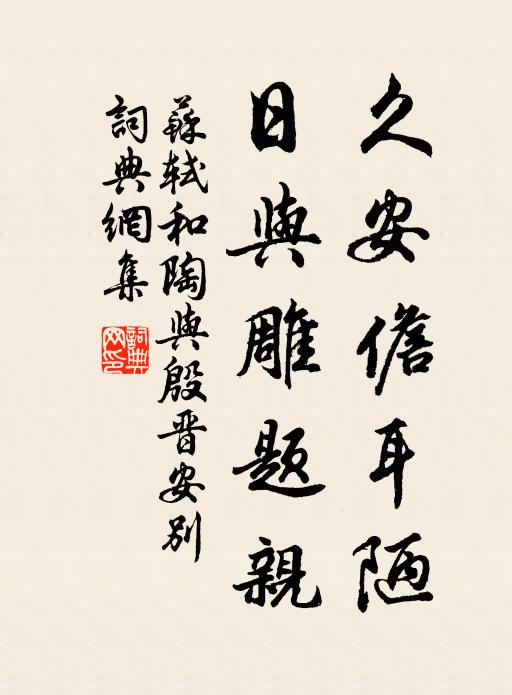 久安儋耳陋
日與雕題親
蘇軾和陶與殷晋安别
詞典網集
詞典网印